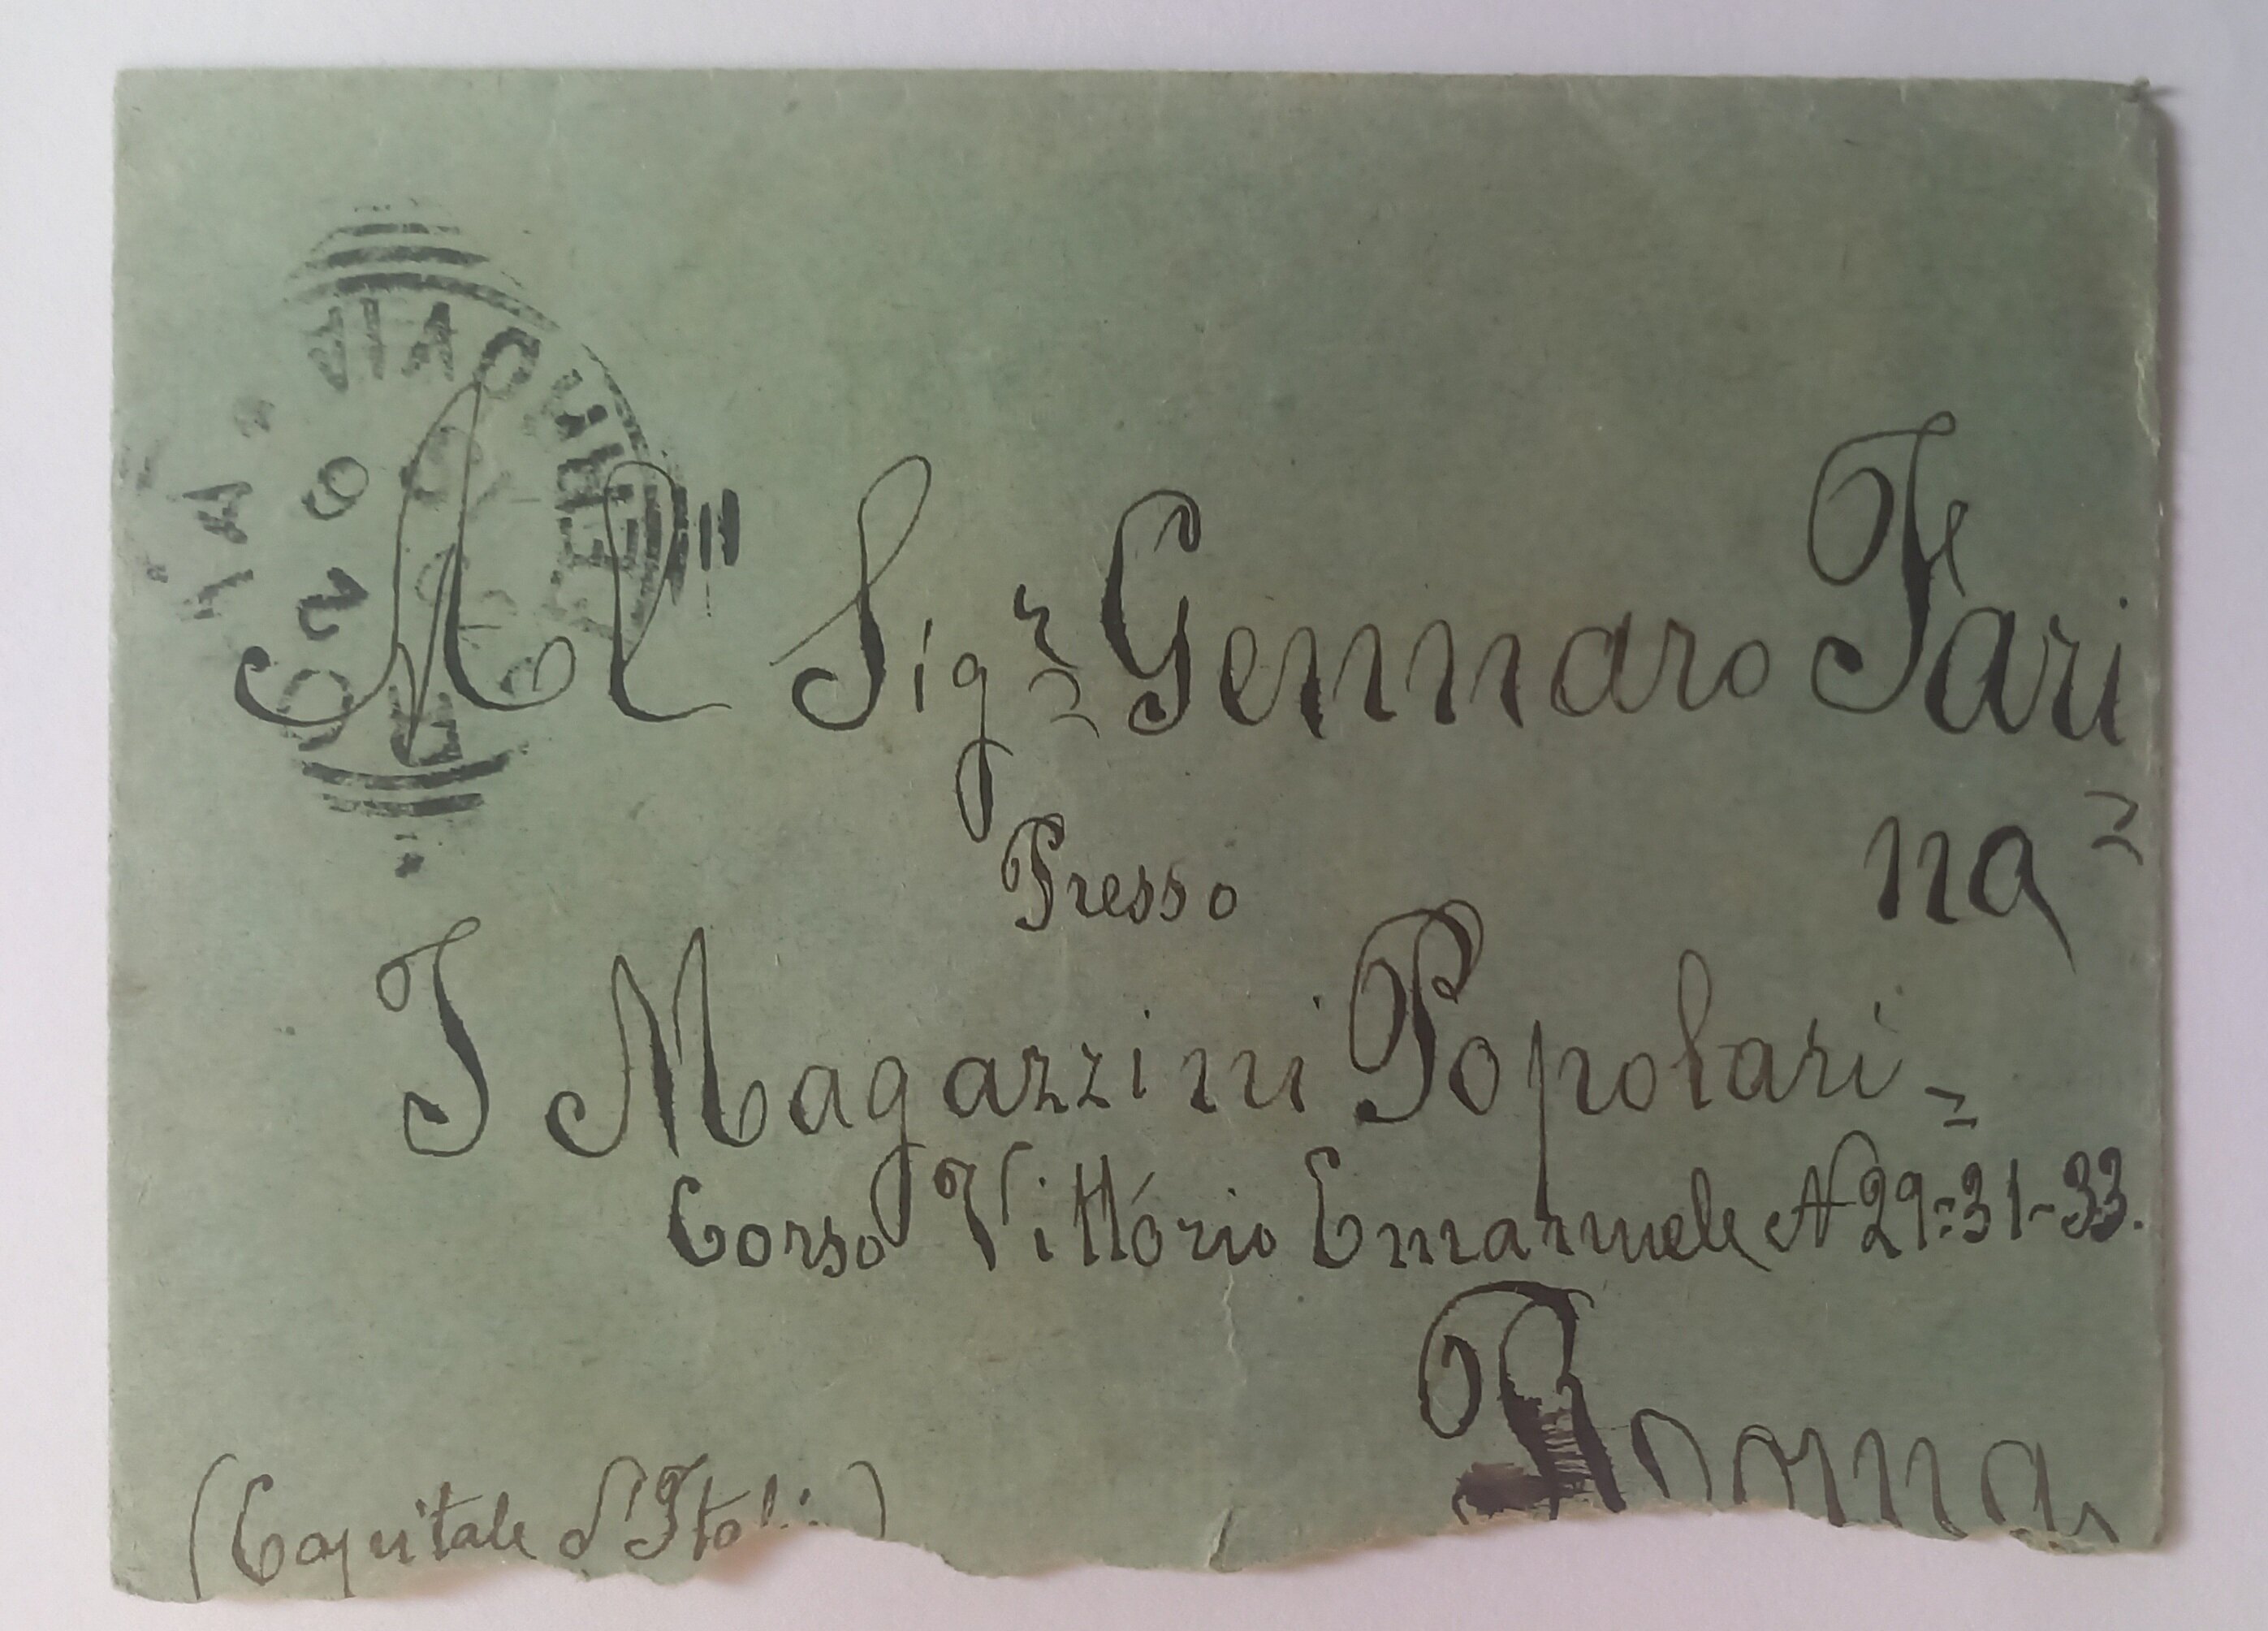 FERROVIA
Al Sigr Gennaro Fari
na
Presso
I Magazzini Popolari =
Corso Vittorio Emanuele N 29=31-33.
Roma
(Capitale d'Italia)